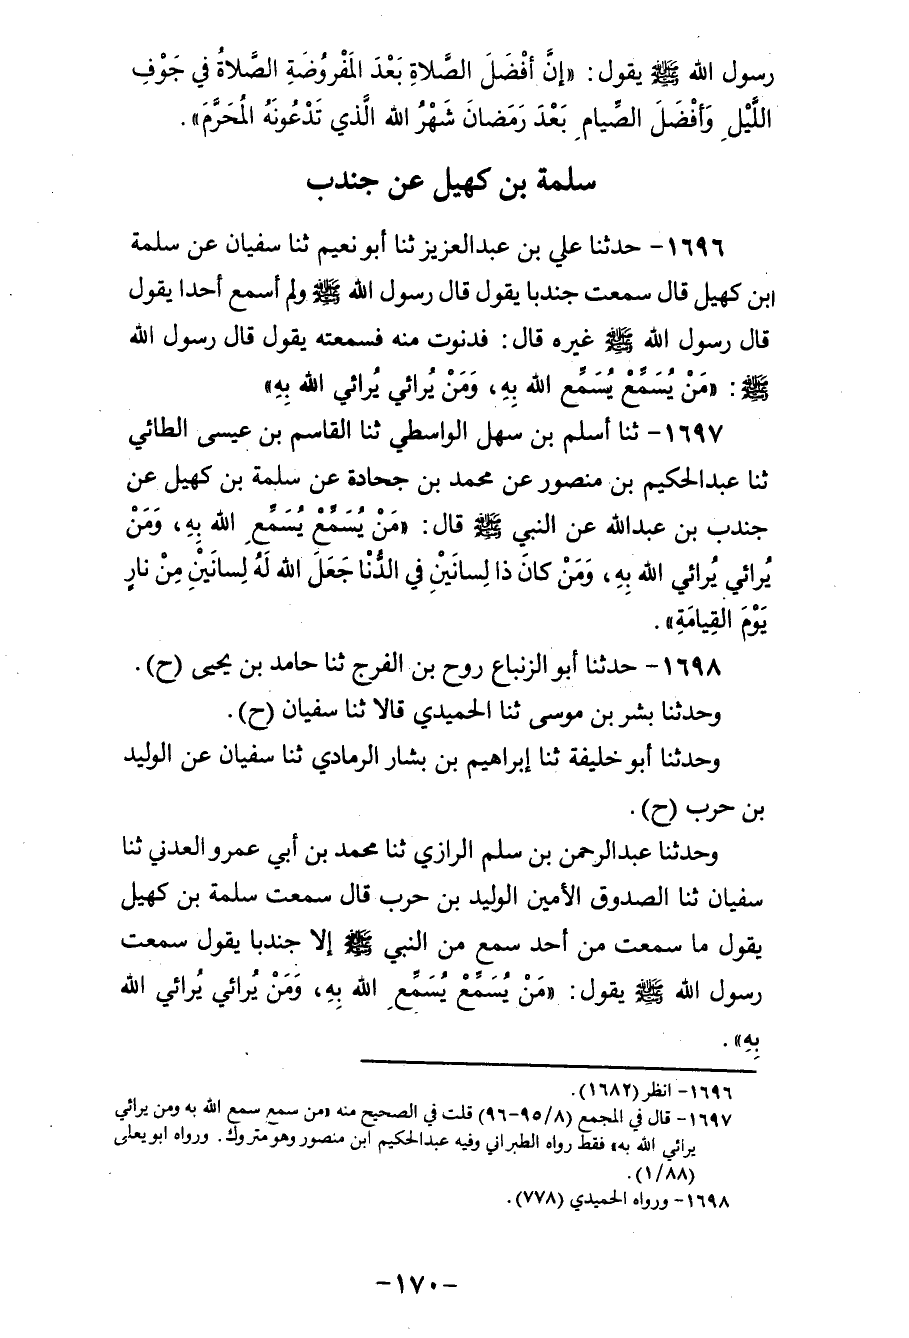 رسول الله ﷺ يقول: «إنَّ أفْضَلَ الصَّلاةِ بَعْدَ المَفْرُوضَةِ الصَّلاةُ في جَوْفِ
اللَّيْلِ وَأفْضَلَ الصِّيامِ بَعْدَ رَمَضانَ شَهْرُ الله الَّذي تَدْعُونَهُ المُحَرَّمَ».
سلمة بن كهيل عن جندب
١٦٩٦- حدثنا علي بن عبدالعزيز ثنا أبو نعيم ثنا سفيان عن سلمة
ابن كهيل قال سمعت جندبا يقول قال رسول الله ﷺ ولم أسمع أحدا يقول
قال رسول الله ﷺ غيره قال: فدنوت منه فسمعته يقول قال رسول الله
ﷺ: «مَنْ يُسَمِّعْ يُسَمِّع الله بِهِ، وَمَنْ يُرائي يُرائي الله بِهِ»
١٦٩٧- ثنا أسلم بن سهل الواسطي ثنا القاسم بن عيسى الطائي
ثنا عبدالحكيم بن منصور عن محمد بن جحادة عن سلمة بن كهيل عن
جندب بن عبدالله عن النبي ﷺ قال: «مَنْ يُسَمِّعْ يُسَمِّعِ الله بِهِ، وَمَنْ
يُرائي يُرائي الله بِهِ، وَمَنْ كانَ ذا لِسانَيْنِ في الدُّنْا جَعَلَ الله لَهُ لِسانَيْنِ مِنْ نارٍ
يَوْمَ القِيامَةِ».
١٦٩٨- حدثنا أبو الزنباع روح بن الفرج ثنا حامد بن يحيى (ح).
وحدثنا بشر بن موسى ثنا الحميدي قالا ثنا سفيان (ح).
وحدثنا أبو خليفة ثنا إبراهيم بن بشار الرمادي ثنا سفيان عن الوليد
بن حرب (ح).
وحدثنا عبدالرحمن بن سلم الرازي ثنا محمد بن أبي عمرو العدني ثنا
سفيان ثنا الصدوق الأمين الوليد بن حرب قال سمعت سلمة بن كهيل
يقول ما سمعت من أحد سمع من النبي ﷺ إلا جندبا يقول سمعت
رسول الله ﷺ يقول: «مَنْ يُسَمِّعْ يُسَمِّعِ الله بِهِ، وَمَنْ يُرائي يُرائي الله
بِهِ».
١٦٩٦- انظر (١٦٨٢).
١٦٩٧- قال في المجمع (٨/٩٥-٩٦) قلت في الصحيح منه «من سمع سمع الله به ومن يرائي
يرائي الله به» فقط رواه الطبراني وفيه عبدالحكيم ابن منصور وهو متروك. ورواه ابو يعلى
(١/٨٨).
١٦٩٨- ورواه الحميدي (٧٧٨).
-١٧٠-